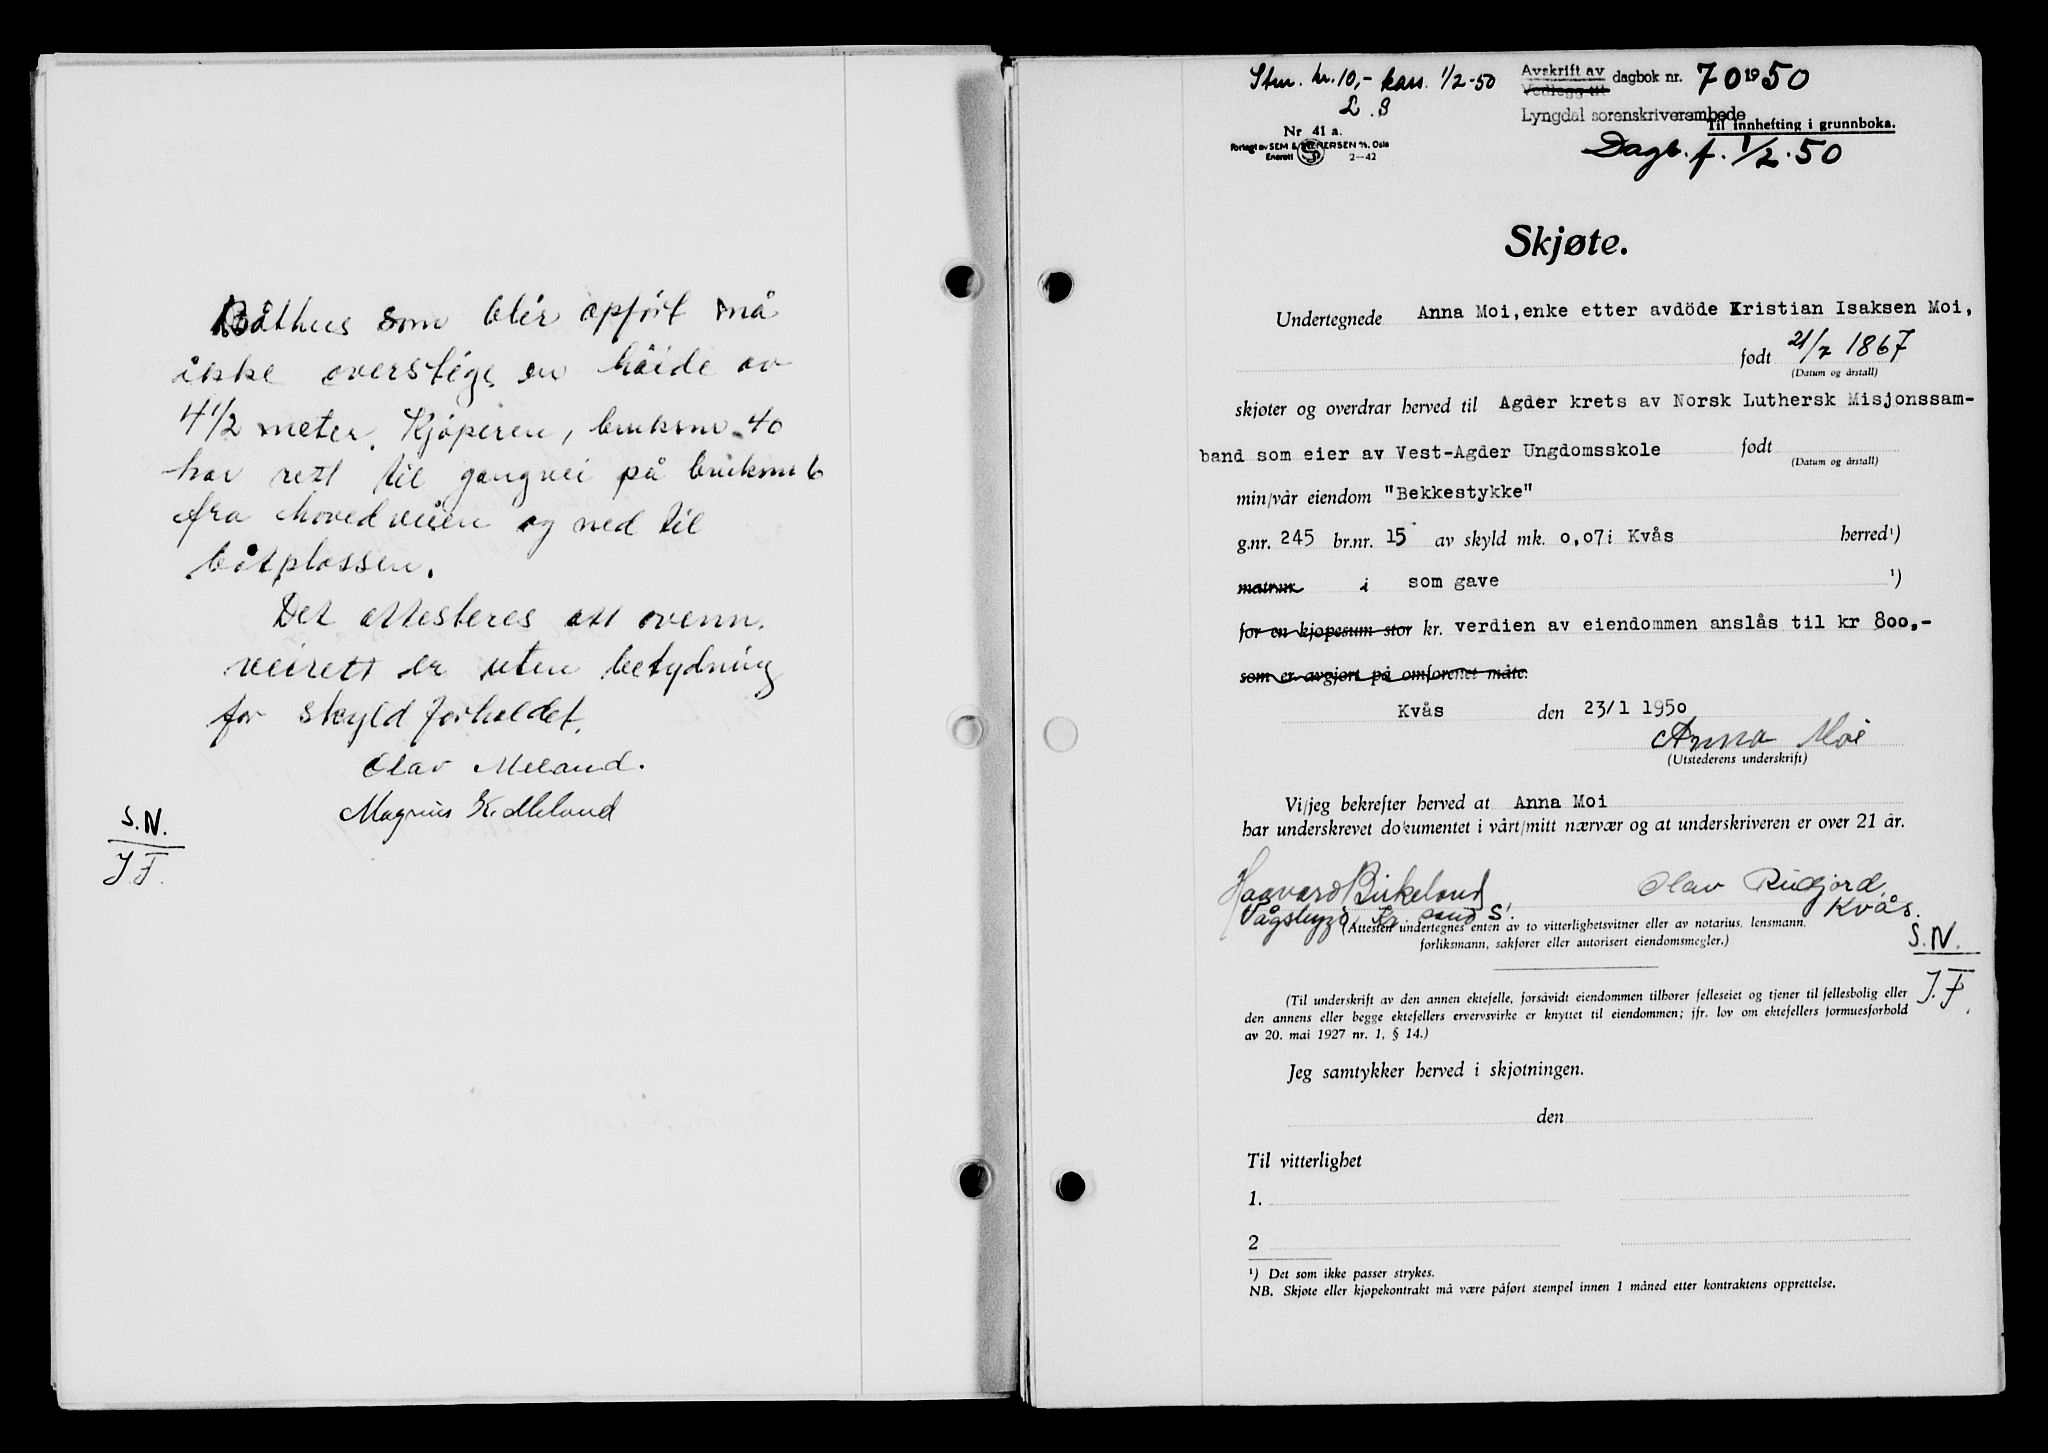 Båthus som blir opført må
ikke overstige en höide av
4 1/2 meter. Kjøperen, bruksnr 40
har rett til gangvei på bruksnr 6
fra hovedveien og ned til
båtplassen.
Det attesteres att ovenn.
veirett er uten betydning
for skyldforholdet.
Olav Meland.
Magnus K. Meland
S.N.
J.F.
Stm. kr. 10,- kass. 1/2-50
L.S
Avskrift av
Vedlegg til
dagbok nr. 70 1950
Lyngdal sorenskriverembede
Til innhefting i grunnboka.
Dagb. f. 1/2.50
Nr 41 a.
Forlagt av SEM & STENERSEN A/S, Oslo
Enerett 2-42
Skjøte.
Undertegnede Anna Moi, enke etter avdöde Kristian Isaksen Moi,
født 21/7 1867
(Datum og årstall)
skjøter og overdrar herved til Agder krets av Norsk Luthersk Misjonssam-
band som eier av Vest-Agder Ungdomsskole født
(Datum og årstall)
min/vår eiendom "Bekkestykke"
g.nr. 245 br.nr. 15 av skyld mk. 0,07 i Kvås herred¹)
matrnr i som gave ¹)
for en kjøpesum stor kr. verdien av eiendommen anslås til kr 800,-
som er avgjort på omforenet måte.
Kvås den 23/1 1950
Anna Moi
(Utstederens underskrift)
Vi/jeg bekrefter herved at Anna Moi
har underskrevet dokumentet i vårt/mitt nærvær og at underskriveren er over 21 år.
Haavard Birkeland Olav Rudjord.
Vågsbygd, Kr.sand S. Kvås.
(Attesten undertegnes enten av to vitterlighetsvitner eller av notarius, lensmann,
forliksmann, sakfører eller autorisert eiendomsmegler.)
S.N.
J.F.
(Til underskrift av den annen ektefelle, forsåvidt eiendommen tilhører felleseiet og tjener til fellesbolig eller
den annens eller begge ektefellers ervervsvirke er knyttet til eiendommen; jfr. lov om ektefellers formuesforhold
av 20. mai 1927 nr. 1, § 14.)
Jeg samtykker herved i skjøtningen.
den
Til vitterlighet
1.
2
¹) Det som ikke passer strykes.
NB. Skjøte eller kjøpekontrakt må være påført stempel innen 1 måned etter kontraktens opprettelse.